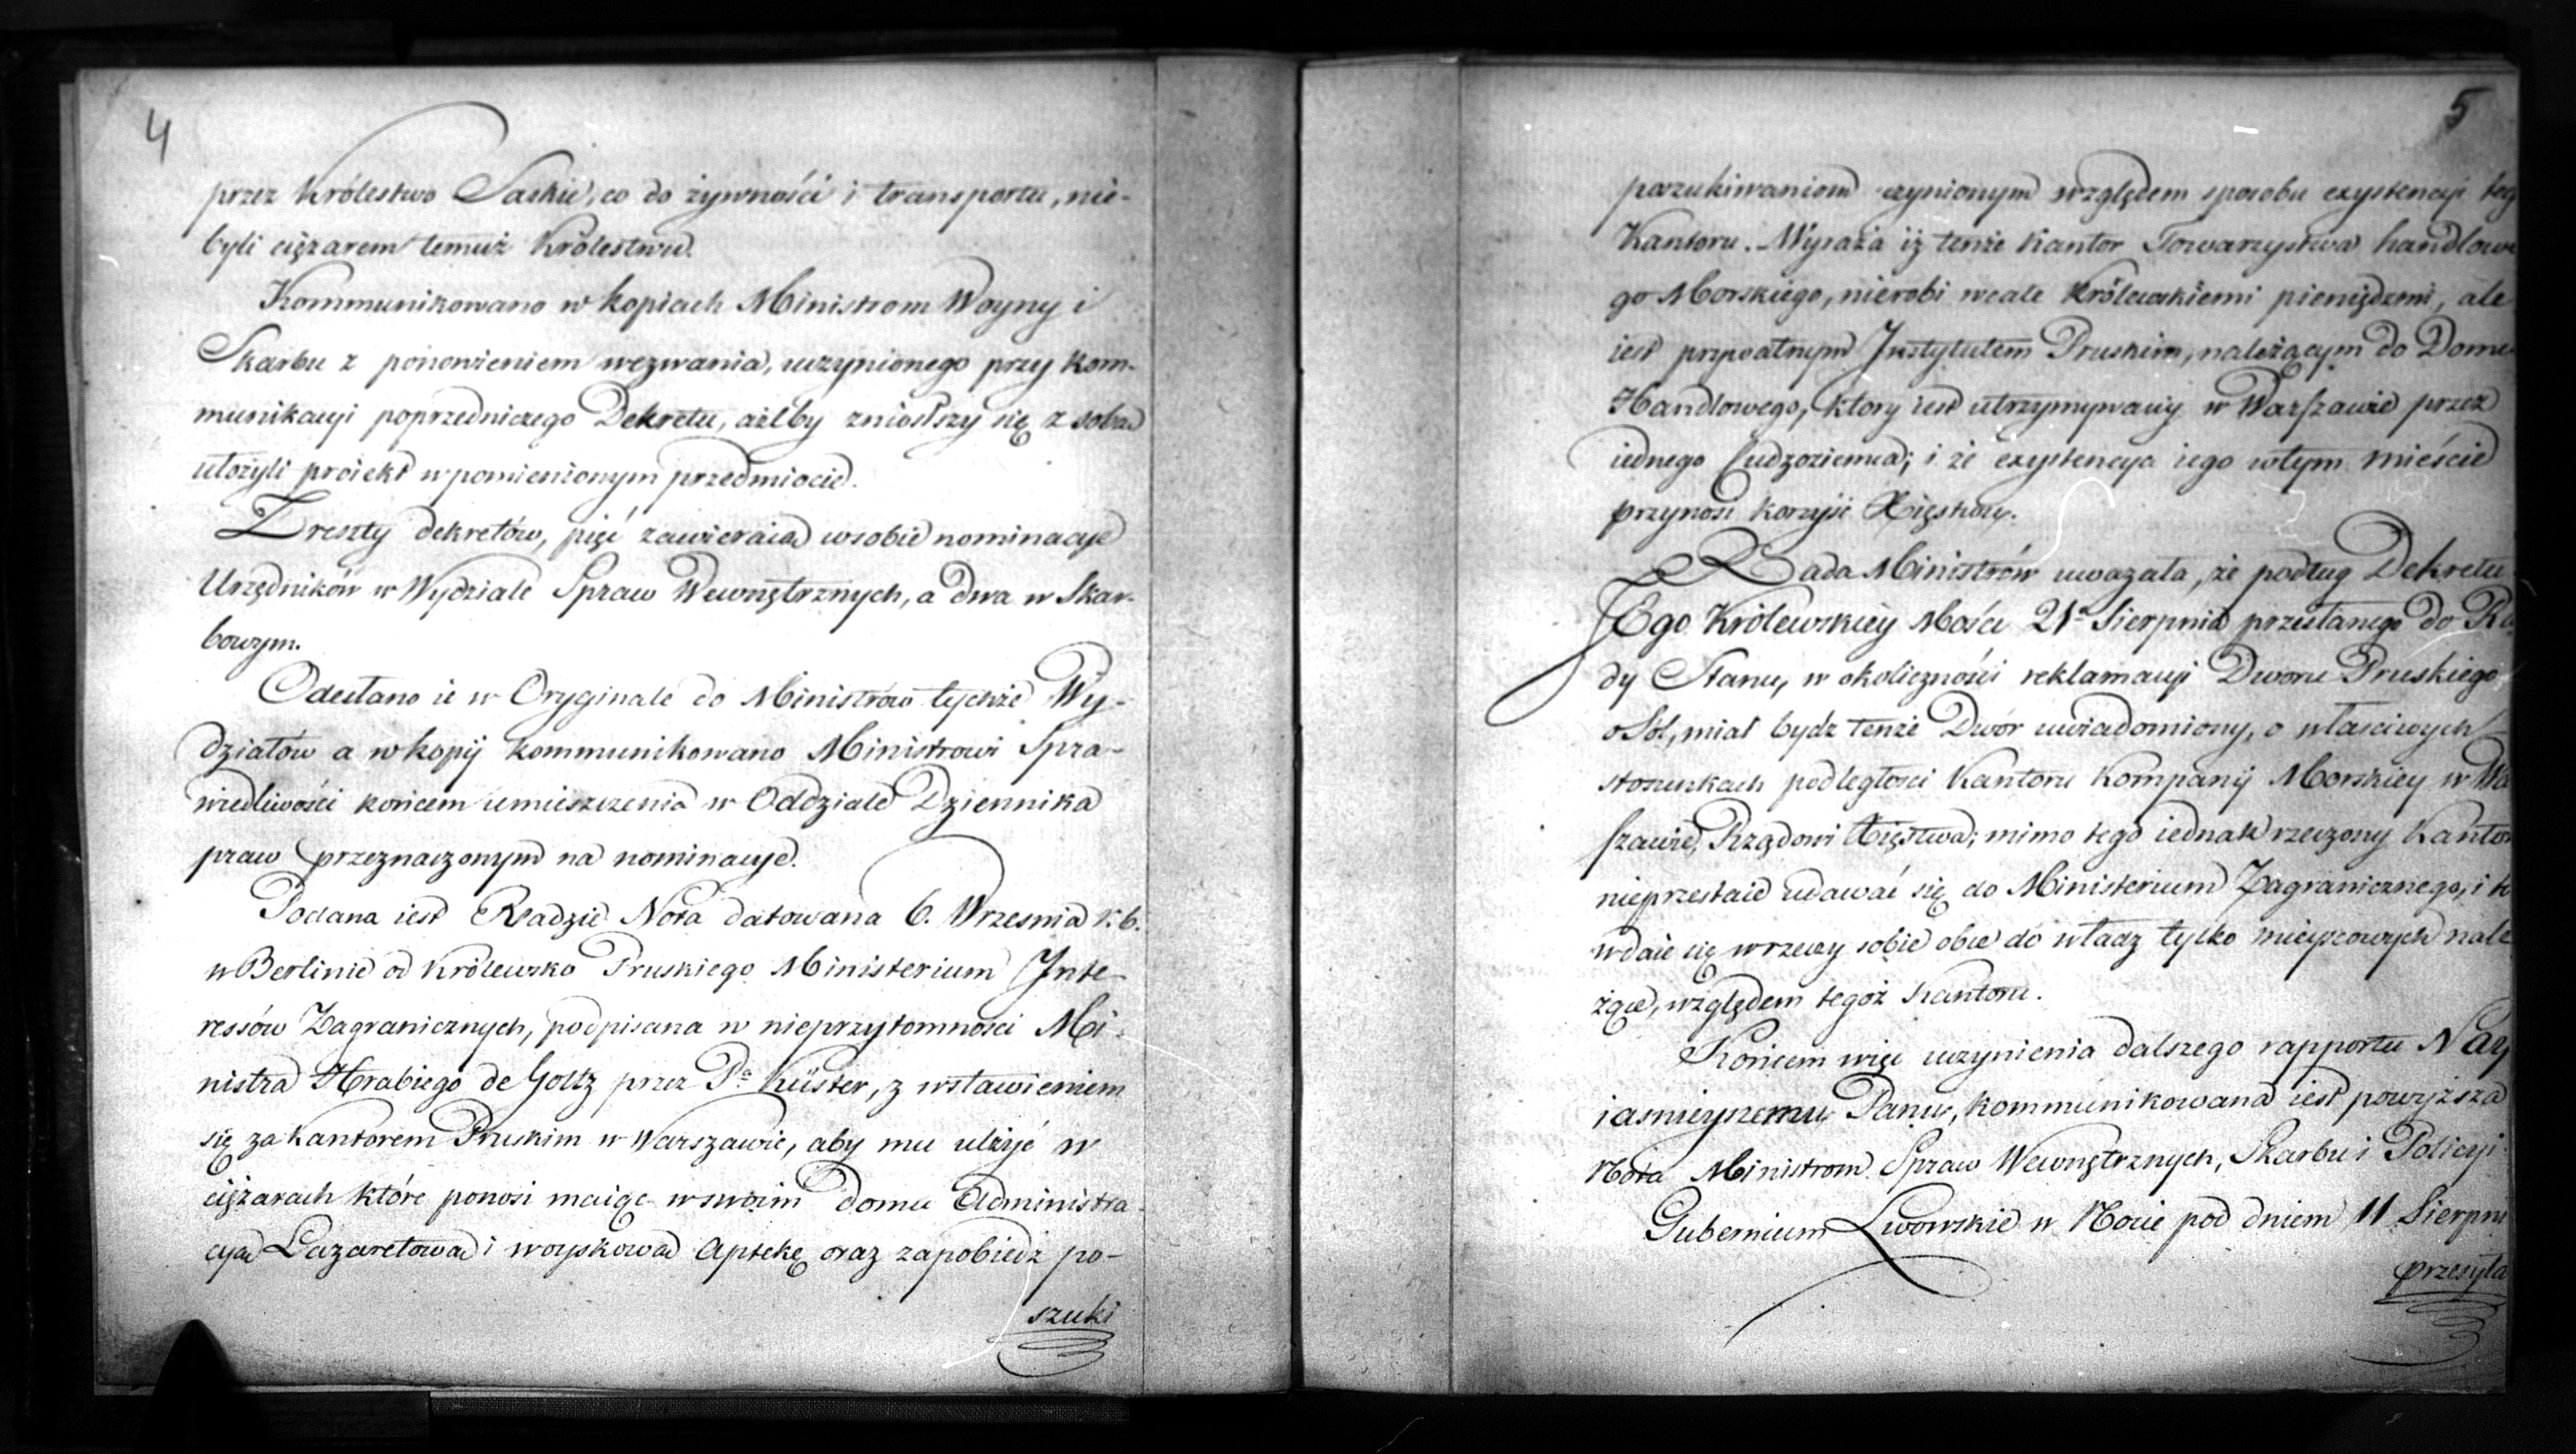 4
przez Królestwo Saskie, co do żywności i transportu, nie-
byli ciężarem temuż Królestwu.
Kommunikowano w kopiach Ministrom Woyny i
Skarbu z ponowieniem wezwania, uczynionego przy kom-
munikacyi poprzedniczego Dekretu, ażeby zniosłszy się z sobą
ułożyli proiekt w pomienionym przedmiocie.
Z reszty dekretów, pięć zawieraią w sobie nominacye
Urzędników w Wydziale Spraw Wewnętrznych, a dwa w Skar-
bowym.
Odesłano ie w Oryginale do Ministrów tychże Wy-
działów a w kopij kommunikowano Ministrowi Spra-
wiedliwości końcem umieszczenia w Oddziale Dziennika
praw przeznaczonym na nominacye.
Podana iest Radzie Nota datowana 6. Wrzesnia r. b.
w Berlinie od Królewsko Pruskiego Ministerium Inte-
ressów Zagranicznych, podpisana w nieprzytomności Mi-
nistra Hrabiego de Goltz przez Pa Küster, z wstawieniem
się za Kantorem Pruskim w Warszawie, aby mu ulżyć w
ciężarach które ponosi maiąc w swoim domu Administra-
cyą Lazaretową i woyskową Aptekę oraz zapobiedz po-
szuki
5
poszukiwaniom czynionym względem sposobu exystencyi teg
Kantoru. Wyraża iż tenże Kantor Towarzystwa handlowe
go Morskiego, nierobi wcale Królewskiemi pieniędzmi, ale
iest prywatnym Instytutem Pruskim, należącym do Domu
Handlowego, ktory iest utrzymywany w Warszawie przez
iednego Cudzoziemca; i że exystencya iego w tym mieście
przynosi korzyść Xięstwu.
Rada Ministrów uważała, że podług Dekretu
JEgo Królewskiey Mości 21a Sierpnia przesłanego do Ra
dy Stanu, w okoliczności reklamacyi Dworu Pruskiego
o Sól, miał bydz tenże Dwór uwiadomiony, o właściwych
stosunkach podległości Kantoru Kompanij Morskiey w Wa
szawie, Rządowi Xięstwa; mimo tego iednak rzeczony Kantor
nieprzestaie udawać się do Ministerium Zagranicznego, i to
wdaie się w rzeczy sobie obce do władz tylko mieyscowych nale
żące, względem tegoż Kantoru.
Końcem więc uczynienia dalszego rapportu Nay
iasnieyszemu Panu, kommunikowana iest powyższa
Nota Ministrom Spraw Wewnętrznych, Skarbu i Policyi.
Gubernium Lwowskie w Nocie pod dniem 11 Sierpni
przesyła